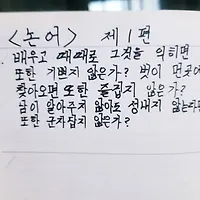 <논어> 제1편
배우고 때때로 그것을 익히면
또한 기쁘지 않은가? 벗이 먼곳에
찾아오면 또한 즐겁지 않은가?
남이 알아주지 않아도 성내지 않는다면
또한 군자답지 않은가?